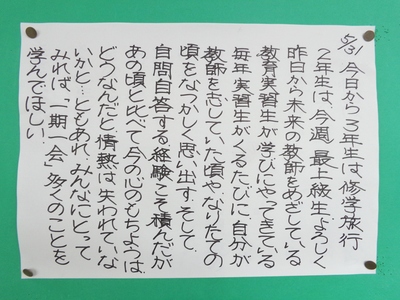 5/31 今日から3年生は、修学旅行
2年生は、今週、最上級生、よろしく
昨日から未来の教師をめざしている
教育実習生が学びにやってきている
毎年実習生がくるたびに、自分が
教師を志していた頃や、なりたての
頃をなつかしく思い出す。そして、
自問自答する経験こそ積んだが
あの頃と比べて、今の心のもちようは、
どうなんだと、情熱は失われていな
いかと…ともあれ、みんなにとって
みれば、「一期一会」多くのことを
学んでほしい